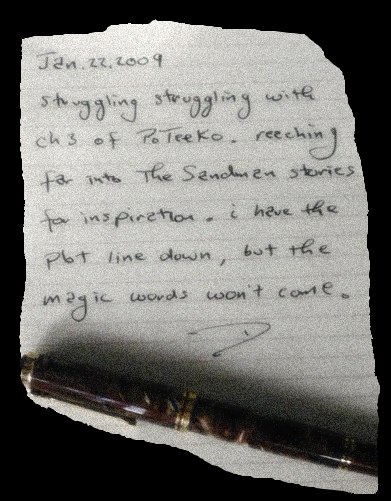 Jan. 22. 2009
struggling struggling with
ch 3 of PoTeeKo. reeching
far into The Sandman stories
for inspiration. i have the
plot line down, but the
magic words won't come.